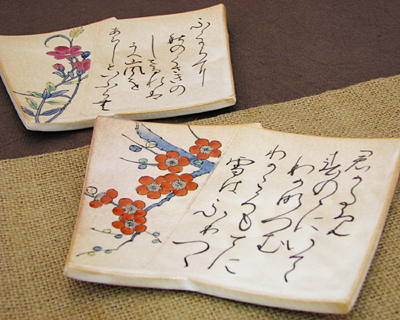 ふくからに
秋のくさきの
しをるれは
うへ山風を
あらしといふらむ
君かため
春のゝにいてて
わかなつむ
わかころもてに
雪はふりつつ